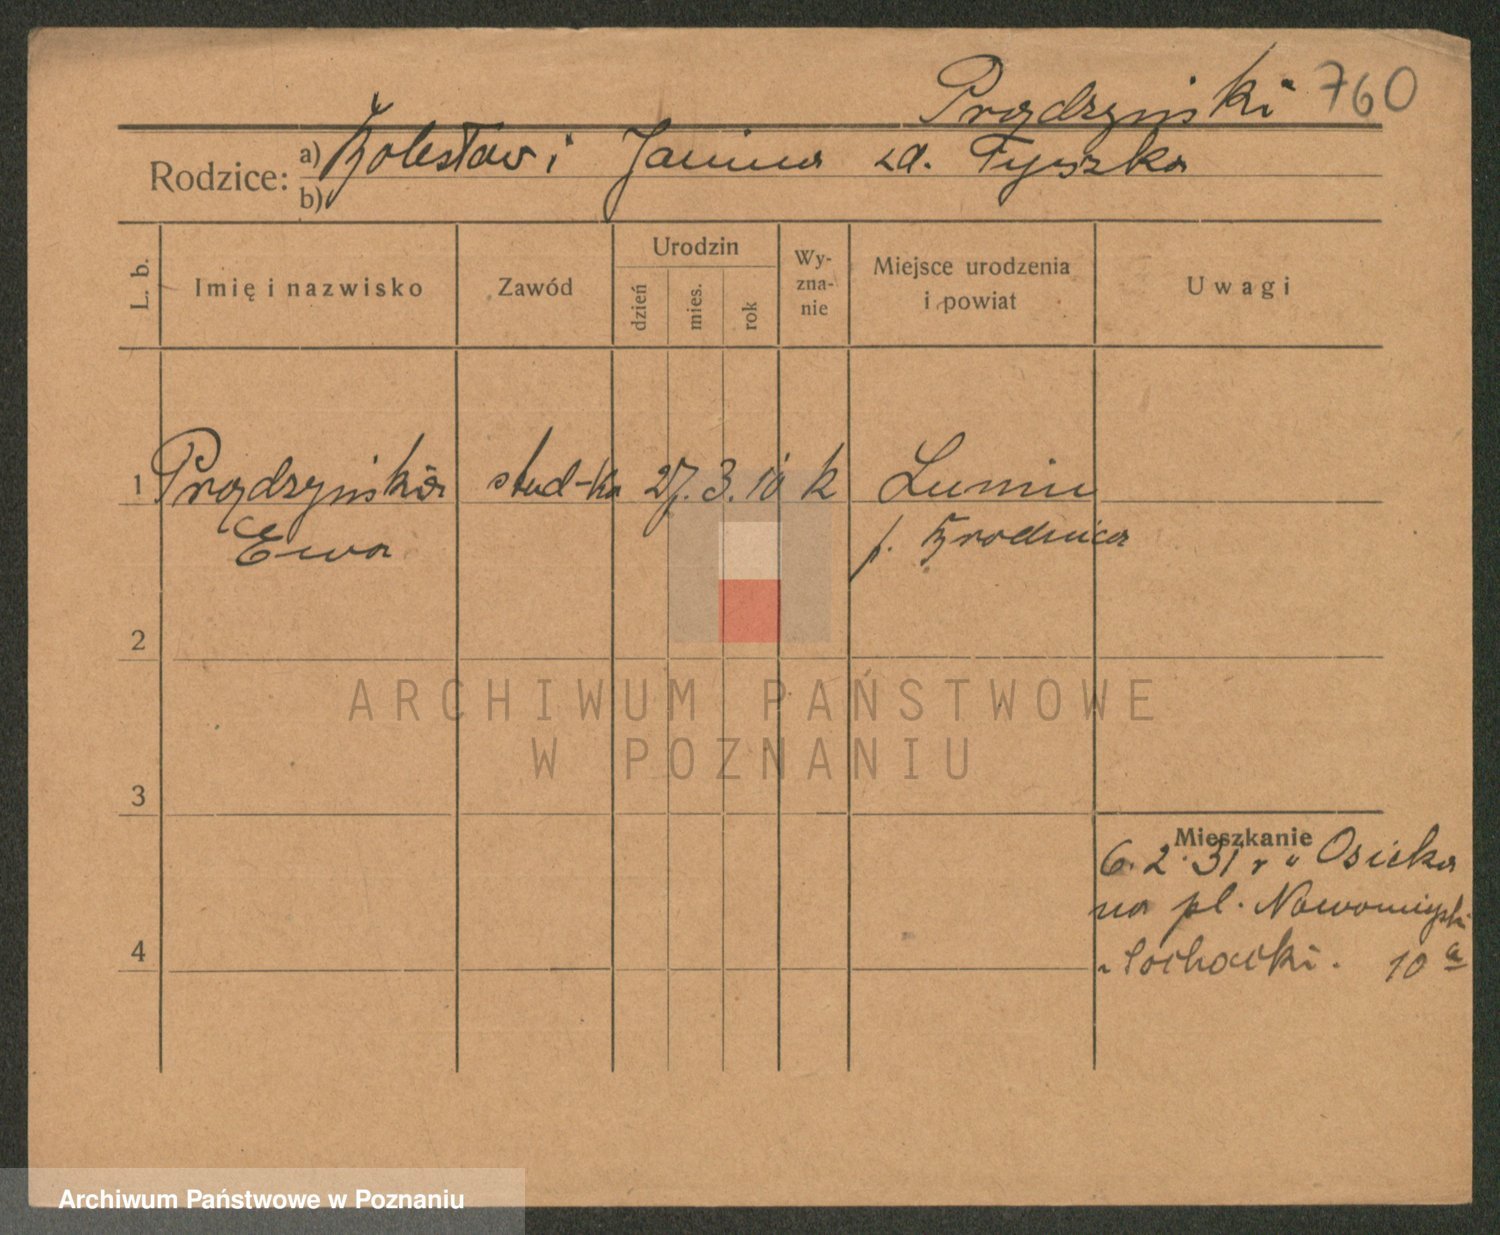 Prądzyński 760
Rodzice: a) Bolesław i Janina zd. Tyszka
b)
L. b. Imię i nazwisko Zawód Urodzin dzień mies. rok Wy-zna-nie Miejsce urodzenia i powiat Uwagi
1 Prądzyńska stud-ka 27. 3. 10 k
Ewa p. Brodnica
2
ARCHIWUM PAŃSTWOWE
W POZNANIU
3
Mieszkanie
6. 2. 31 r " Osieka
na pl. Nowomiejski
4 Sochacki. 10 a
Archiwum Państwowe w Poznaniu